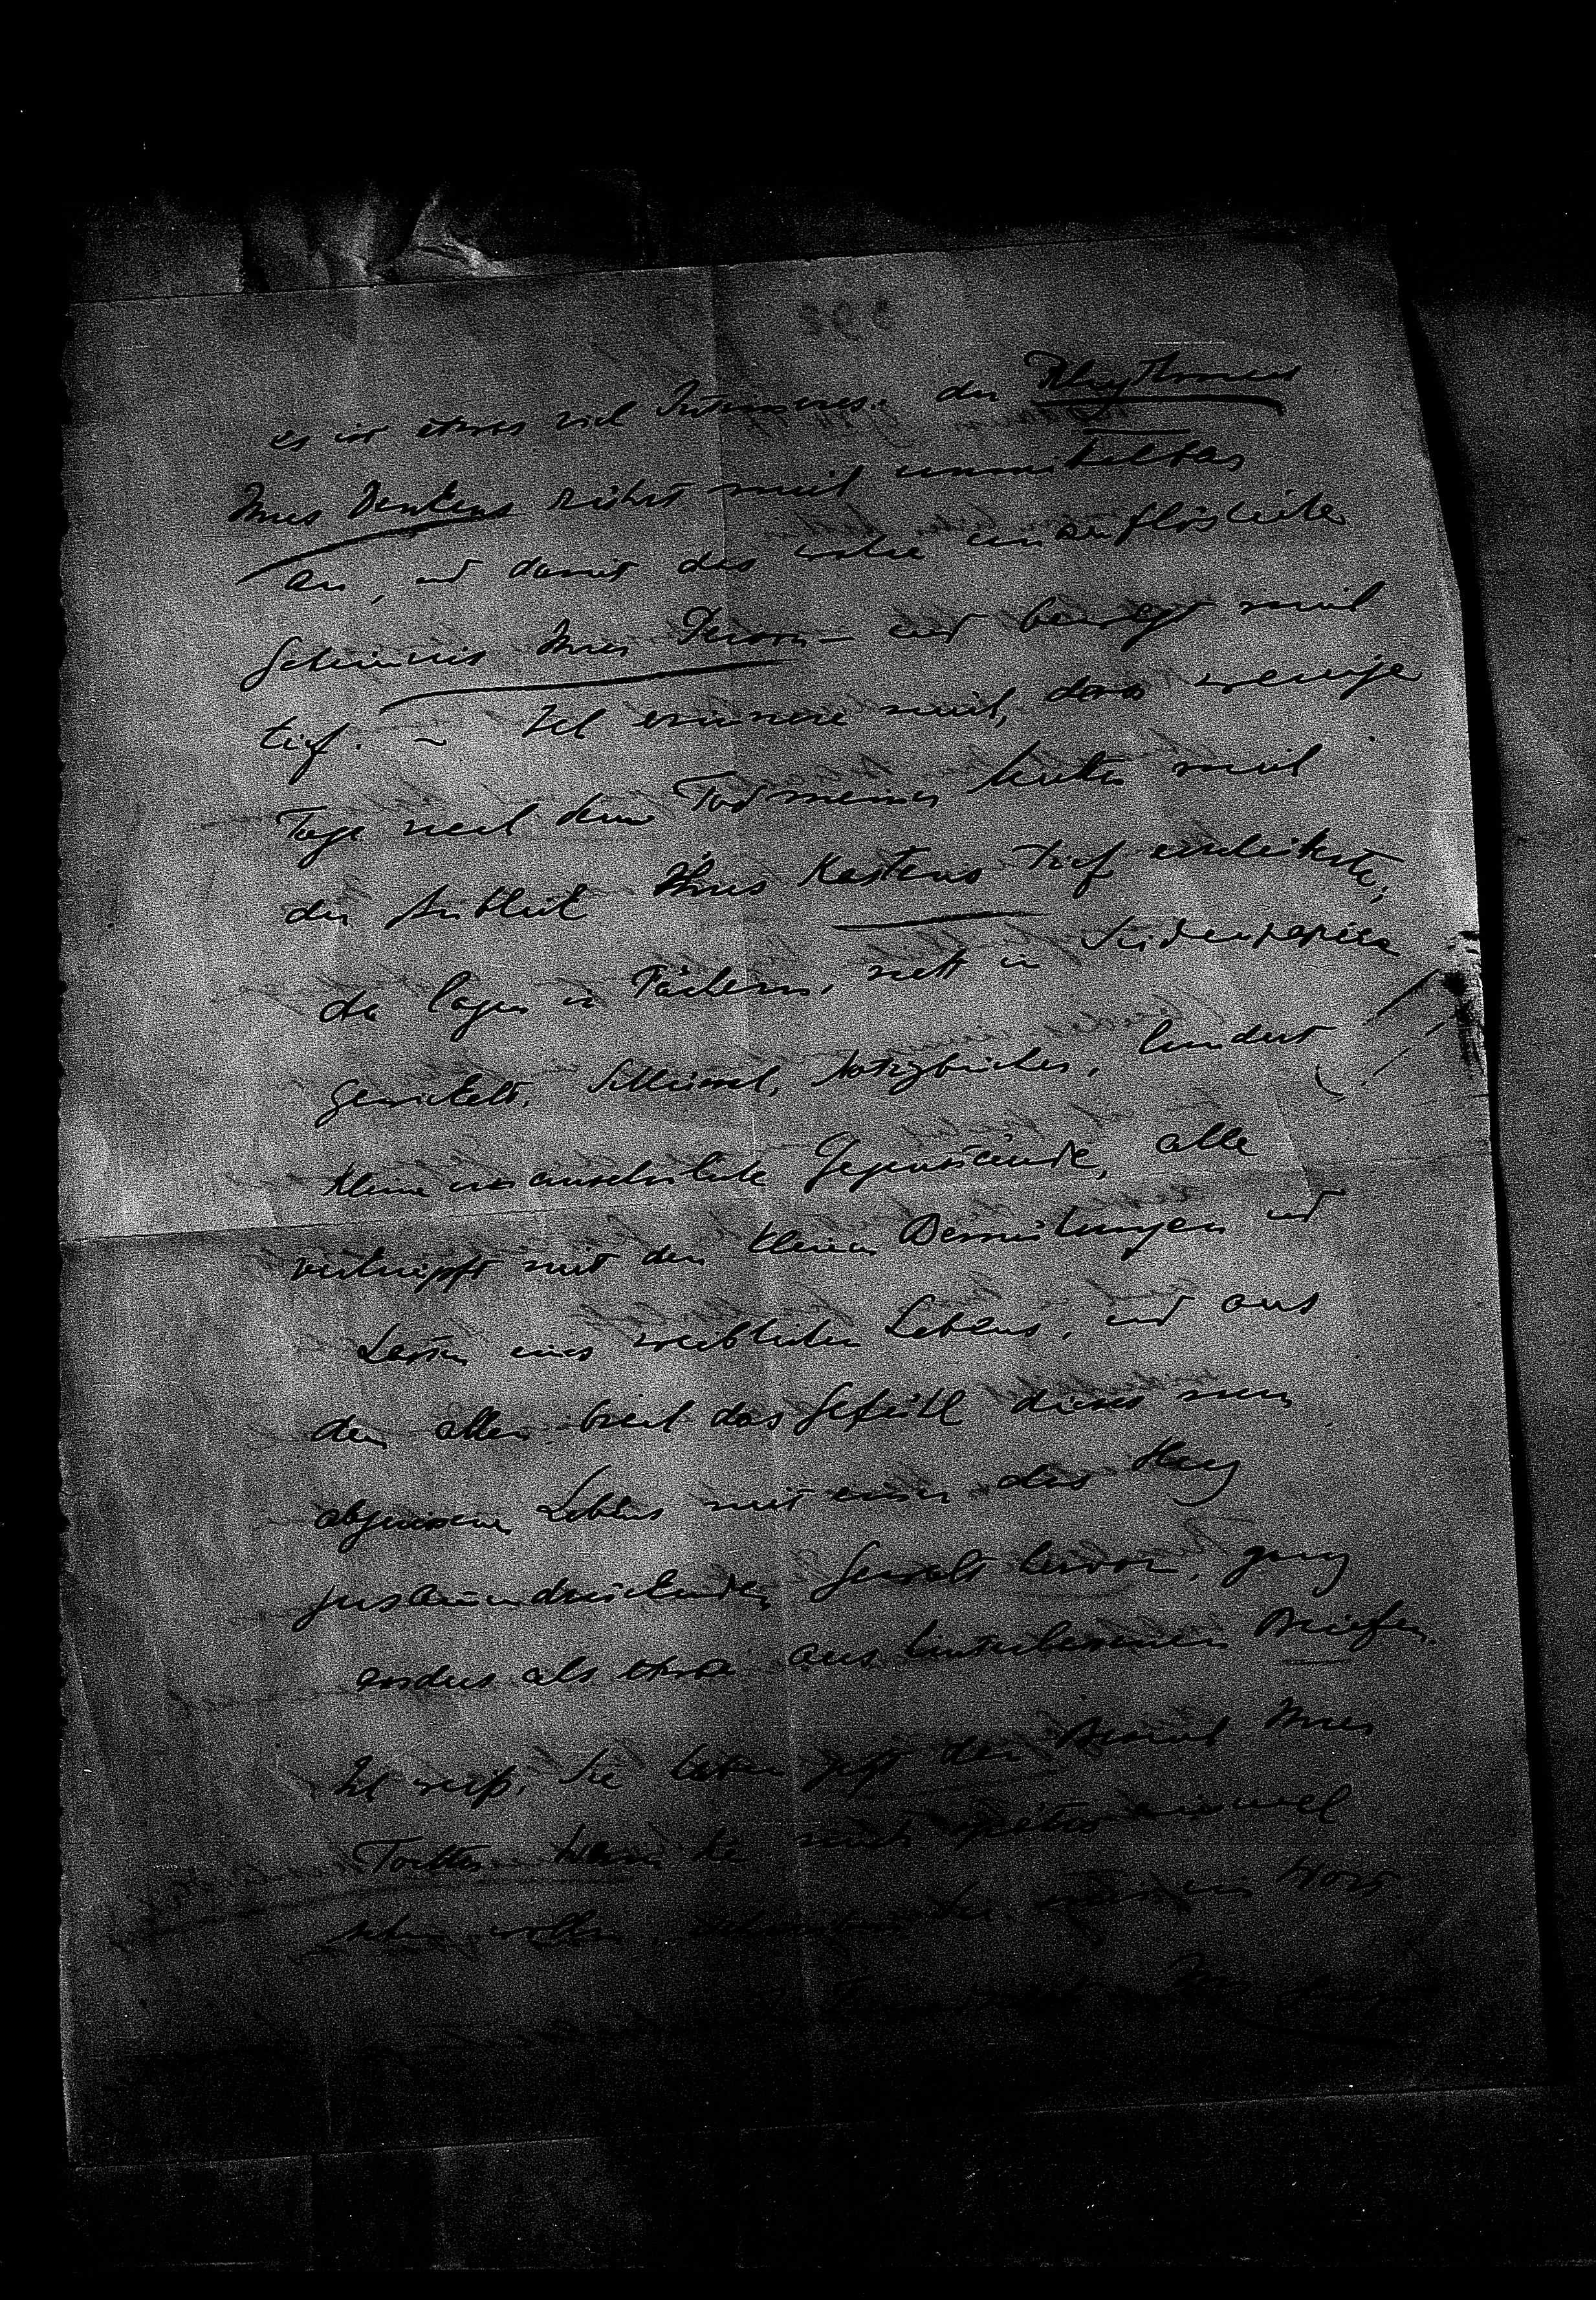 es ist etwas viel Intimeres: der Rhythmus
Ihres Denkens rührt mich unmittelbar
an, und damit das wahre unauflösliche
Geheimnis Ihrer Person – und bewegt mich
tief. – Ich erinnere mich, dass wenige
Tage nach dem Tod meiner Mutter mich
der Anblick Ihres Kastens tief erschütterte;
da lagen in Fächern, nett in Seidenpapier
gewickelt, Schlüssel, Notizbücher, hundert
kleine unscheinbare Gegenstände, alle
verknüpft mit den kleinen Bemühungen und
eines weiblichen Lebens, und aus
dem allen brach das Gefühl dieses nun
abgerissenen Lebens mit einer das Herz
zusammendrückenden Gewalt hervor, ganz
anders als etwa aus hinterlassenen Briefen.
Ich weiss, Sie haben jetzt den Besuch Ihrer
Tochter. Wenn Sie mich später einmal
sehen wollen, ein Wort.
Ihr